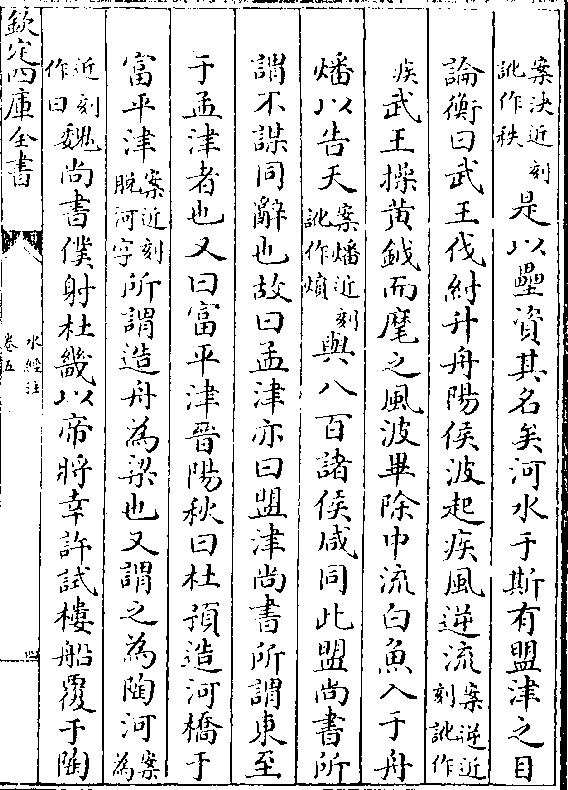 案決近刻訛作秩是以壘資其名矣河水于斯有盟津之目
論衡曰武王伐紂升舟陽侯波起疾風逆流案逆近刻訛作
疾武王操黃鉞而麾之風波畢除中流白魚入于舟
燔以告天案燔近刻訛作燌與八百諸侯咸同此盟尚書所
謂不謀同辭也故曰孟津亦曰盟津尚書所謂東至
于孟津者也又曰富平津晉陽秋曰杜預造河橋于
富平津案近刻脫河字所謂造舟為梁也又謂之為陶河案為
近刻作曰魏尚書僕射杜畿以帝將幸許試樓船覆于陶
欽定四庫全書
水經注
卷五
四